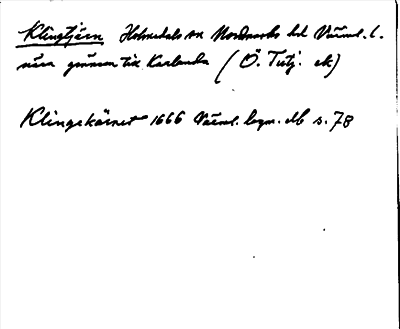 Klingtjärn Holmedals sn Nordmarks hd Värml. l.
nära gränsen till Karlanda (Ö. Tutj. ek)
Klingekärnet 1666 Värml. begr. dlb s. 78